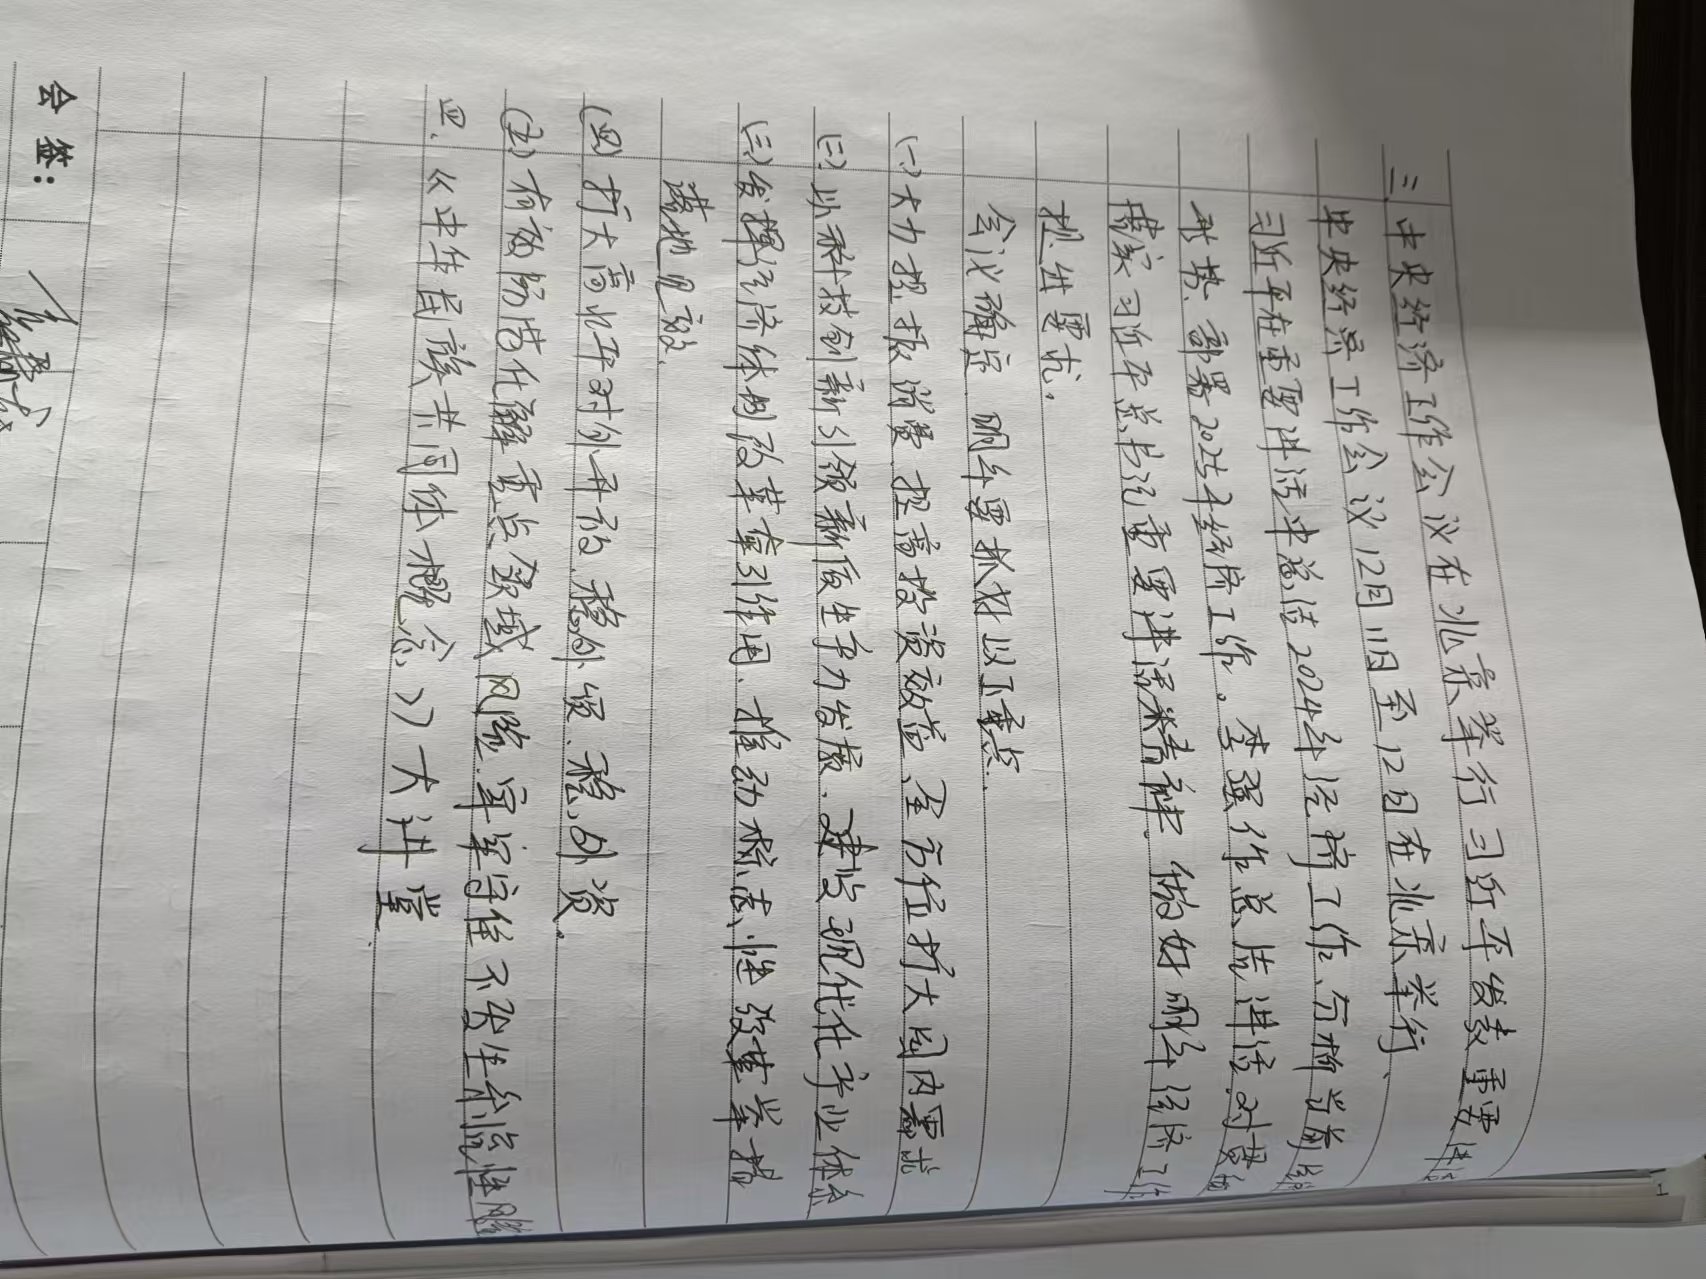 三、中央经济工作会议在北京举行 习近平发表重要讲话
中央经济工作会议12月11日至12日在北京举行、
习近平在重要讲话中总结2024年经济工作、分析当前经
形势、部署2025年经济工作。李强作总结讲话、对贯彻
落实习近平总书记重要讲话精神、做好明年经济工作
提出要求。
会议确定、明年要抓好以下重点.
(一)大力提振消费、提高投资效益、全方位扩大国内需求
(二)以科技创新引领新质生产力发展、建设现代化产业体系
(三)发挥经济体制改革牵引作用、推动标志性改革举措
落地见效.
(四)扩大高水平对外开放、稳外贸、稳外资。
(五)有效防范化解重点领域风险、牢牢守住不发生系统性风险
四、《中华民族共同体概念》大讲堂.
会签：